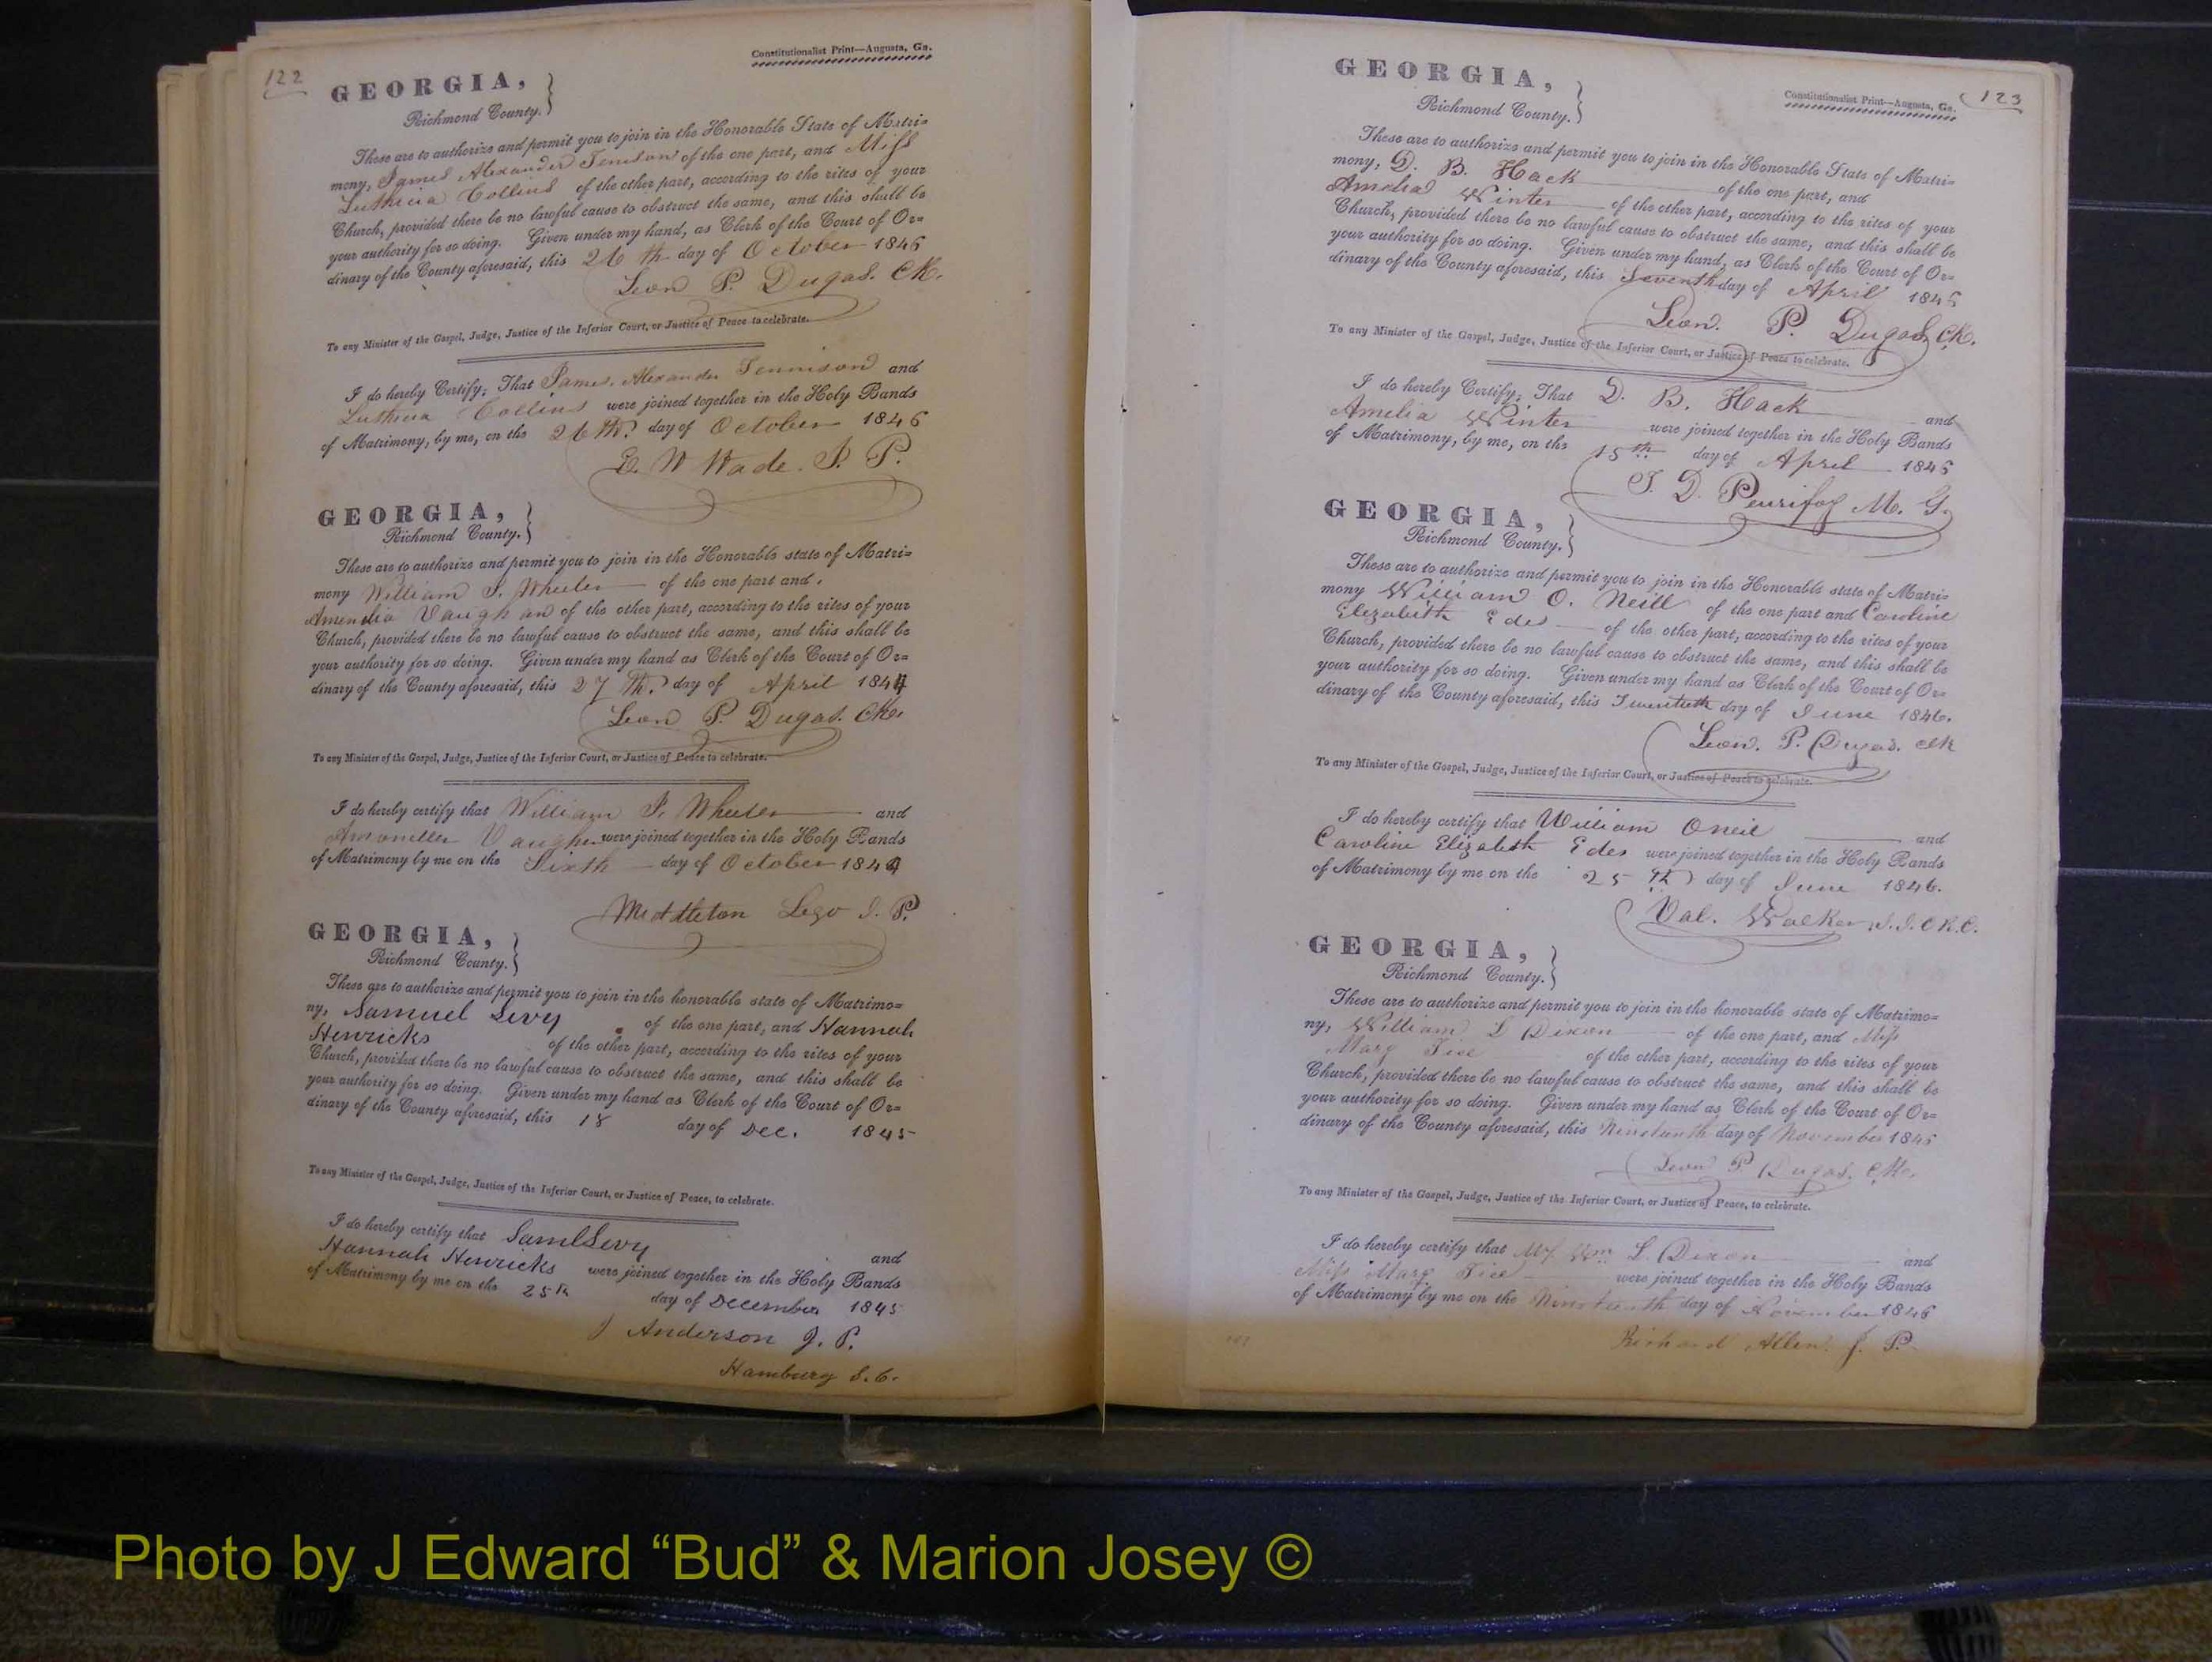 122
Constitutionalist Print—Augusta, Ga.
GEORGIA,
Richmond County.
These are to authorize and permit you to join in the Honorable State of Matri=
mony, James Alexander Tenison of the one part, and Miss
Luthicia Collins of the other part, according to the rites of your
Church, provided there be no lawful cause to obstruct the same, and this shall be
your authority for so doing. Given under my hand, as Clerk of the Court of Or=
dinary of the County aforesaid, this 26th day of October 1846
Leon P. Dugas. Clk.
To any Minister of the Gospel, Judge, Justice of the Inferior Court, or Justice of Peace to celebrate.
I do hereby Certify; That James. Alexander Tennison and
Collins were joined together in the Holy Bands
of Matrimony, by me, on the 26th. day of October 1846
W Wade. J. P.
GEORGIA,
Richmond County.
These are to authorize and permit you to join in the Honorable state of Matri=
mony William J. Wheeler of the one part and
Vaughan of the other part, according to the rites of your
Church, provided there be no lawful cause to obstruct the same, and this shall be
your authority for so doing. Given under my hand as Clerk of the Court of Or=
dinary of the County aforesaid, this 27th. day of April 1844
Leon P. Dugas. Clk.
To any Minister of the Gospel, Judge, Justice of the Inferior Court, or Justice of Peace to celebrate.
I do hereby certify that William J. Wheeler and
Vaughn were joined together in the Holy Bands
of Matrimony by me on the Sixth day of October 1844
Middleton Lego J. P.
GEORGIA,
Richmond County.
These are to authorize and permit you to join in the honorable state of Matrimo=
ny, Samuel Levy of the one part, and Hannah
Henricks of the other part, according to the rites of your
Church, provided there be no lawful cause to obstruct the same, and this shall be
your authority for so doing. Given under my hand as Clerk of the Court of Or=
dinary of the County aforesaid, this 18 day of Dec. 1845
To any Minister of the Gospel, Judge, Justice of the Inferior Court, or Justice of Peace, to celebrate.
I do hereby certify that Saml Levy and
Hannah Henricks were joined together in the Holy Bands
of Matrimony by me on the 25th day of December 1845
J Anderson J. P.
Hamburg S. C.
123
Constitutionalist Print—Augusta, Ga.
GEORGIA,
Richmond County.
These are to authorize and permit you to join in the Honorable State of Matri=
mony, D. B. Hack of the one part, and
Amelia Winter of the other part, according to the rites of your
Church, provided there be no lawful cause to obstruct the same, and this shall be
your authority for so doing. Given under my hand, as Clerk of the Court of Or=
dinary of the County aforesaid, this Seventh day of April 1846
Leon. P. Dugas Clk.
To any Minister of the Gospel, Judge, Justice of the Inferior Court, or Justice of Peace to celebrate.
I do hereby Certify; That D. B. Hack and
Amelia Winter were joined together in the Holy Bands
of Matrimony, by me, on the 15th day of April 1846
D. Peurifoy M. G.
GEORGIA,
Richmond County.
These are to authorize and permit you to join in the Honorable state of Matri=
mony William O. Neill of the one part and Caroline
Elezabeth Edes of the other part, according to the rites of your
Church, provided there be no lawful cause to obstruct the same, and this shall be
your authority for so doing. Given under my hand as Clerk of the Court of Or=
dinary of the County aforesaid, this Twentieth day of June 1846.
Leon. P. Dugas. clk
To any Minister of the Gospel, Judge, Justice of the Inferior Court, or Justice of Peace to celebrate.
I do hereby certify that William Oneil and
Caroline Elizabeth Edes were joined together in the Holy Bands
of Matrimony by me on the 25th day of June 1846.
Val. Walker, J.I.C.R.C.
GEORGIA,
Richmond County.
These are to authorize and permit you to join in the honorable state of Matrimo=
ny, William L Dixon of the one part, and Miss
Mary Tice of the other part, according to the rites of your
Church, provided there be no lawful cause to obstruct the same, and this shall be
your authority for so doing. Given under my hand as Clerk of the Court of Or=
dinary of the County aforesaid, this Nineteenth day of November 1845
Leon P Dugas. Clk.
To any Minister of the Gospel, Judge, Justice of the Inferior Court, or Justice of Peace, to celebrate.
I do hereby certify that Mr. Wm L. Dixon and
Miss Mary Tice were joined together in the Holy Bands
of Matrimony by me on the Nineteenth day of November 1846
Richard Allen. J. P.
Photo by J Edward “Bud” & Marion Josey ©